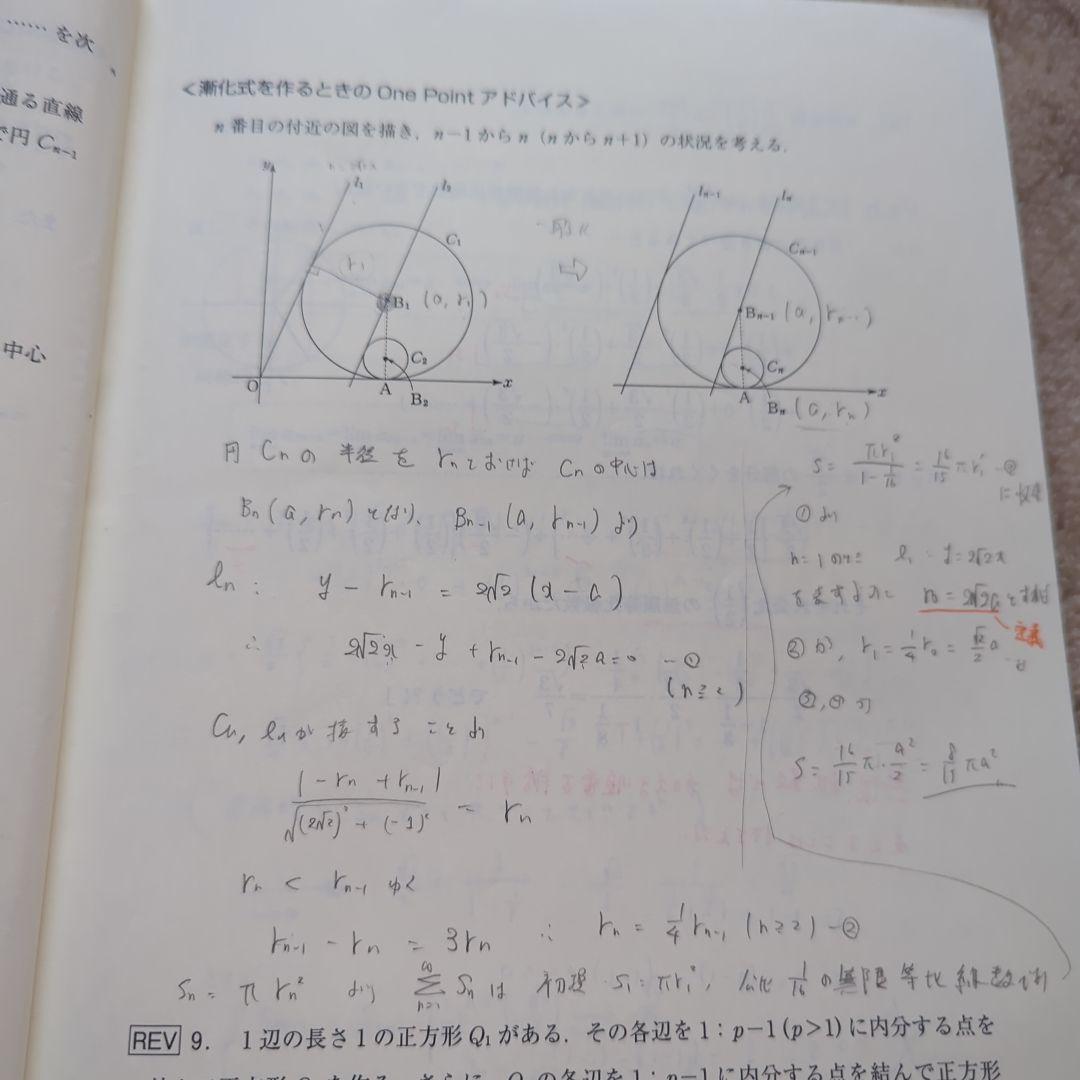 …… を次
通る直線
で円 Cn-1
中心
＜漸化式を作るときの One Point アドバイス＞
n 番目の付近の図を描き，n-1 から n (n から n+1) の状況を考える．
y l1 l2 C1 (r1) B1 (a, r1) C2 O A B2 x
⇨
ln-1 ln Cn-1 Bn-1 (a, rn-1) Cn A Bn (a, rn) x
円 Cn の 半径 を rn とおけば Cn の中心は
Bn (a, rn) となり、 Bn-1 (a, rn-1) より
ln : y - rn-1 = 2√2 (x - a)
∴ 2√2x - y + rn-1 - 2√2a = 0 -①
(n≧2)
Cn, ln が 接する ことより
|-rn + rn-1| / √((2√2)² + (-1)²) = rn
rn < rn-1 ゆえ
rn-1 - rn = 3rn ∴ rn = 1/4 rn-1 (n≧2) -②
Sn = π rn² より ∞Σn=1 Sn は 初項 S1 = πr1², 公比 1/16 の無限等比級数であり
S = πr1² / (1 - 1/16) = 16/15 πr1²
①より
n=1 のとき l1 : y = 2√2x
r0 = 2√2a
②から, r1 = 1/4 r0 = √2/2 a
S = 16/15 π · a²/2 = 8/15 πa²
REV 9. 1辺の長さ1の正方形 Q1 がある．その各辺を 1 : p-1 (p>1) に内分する点を